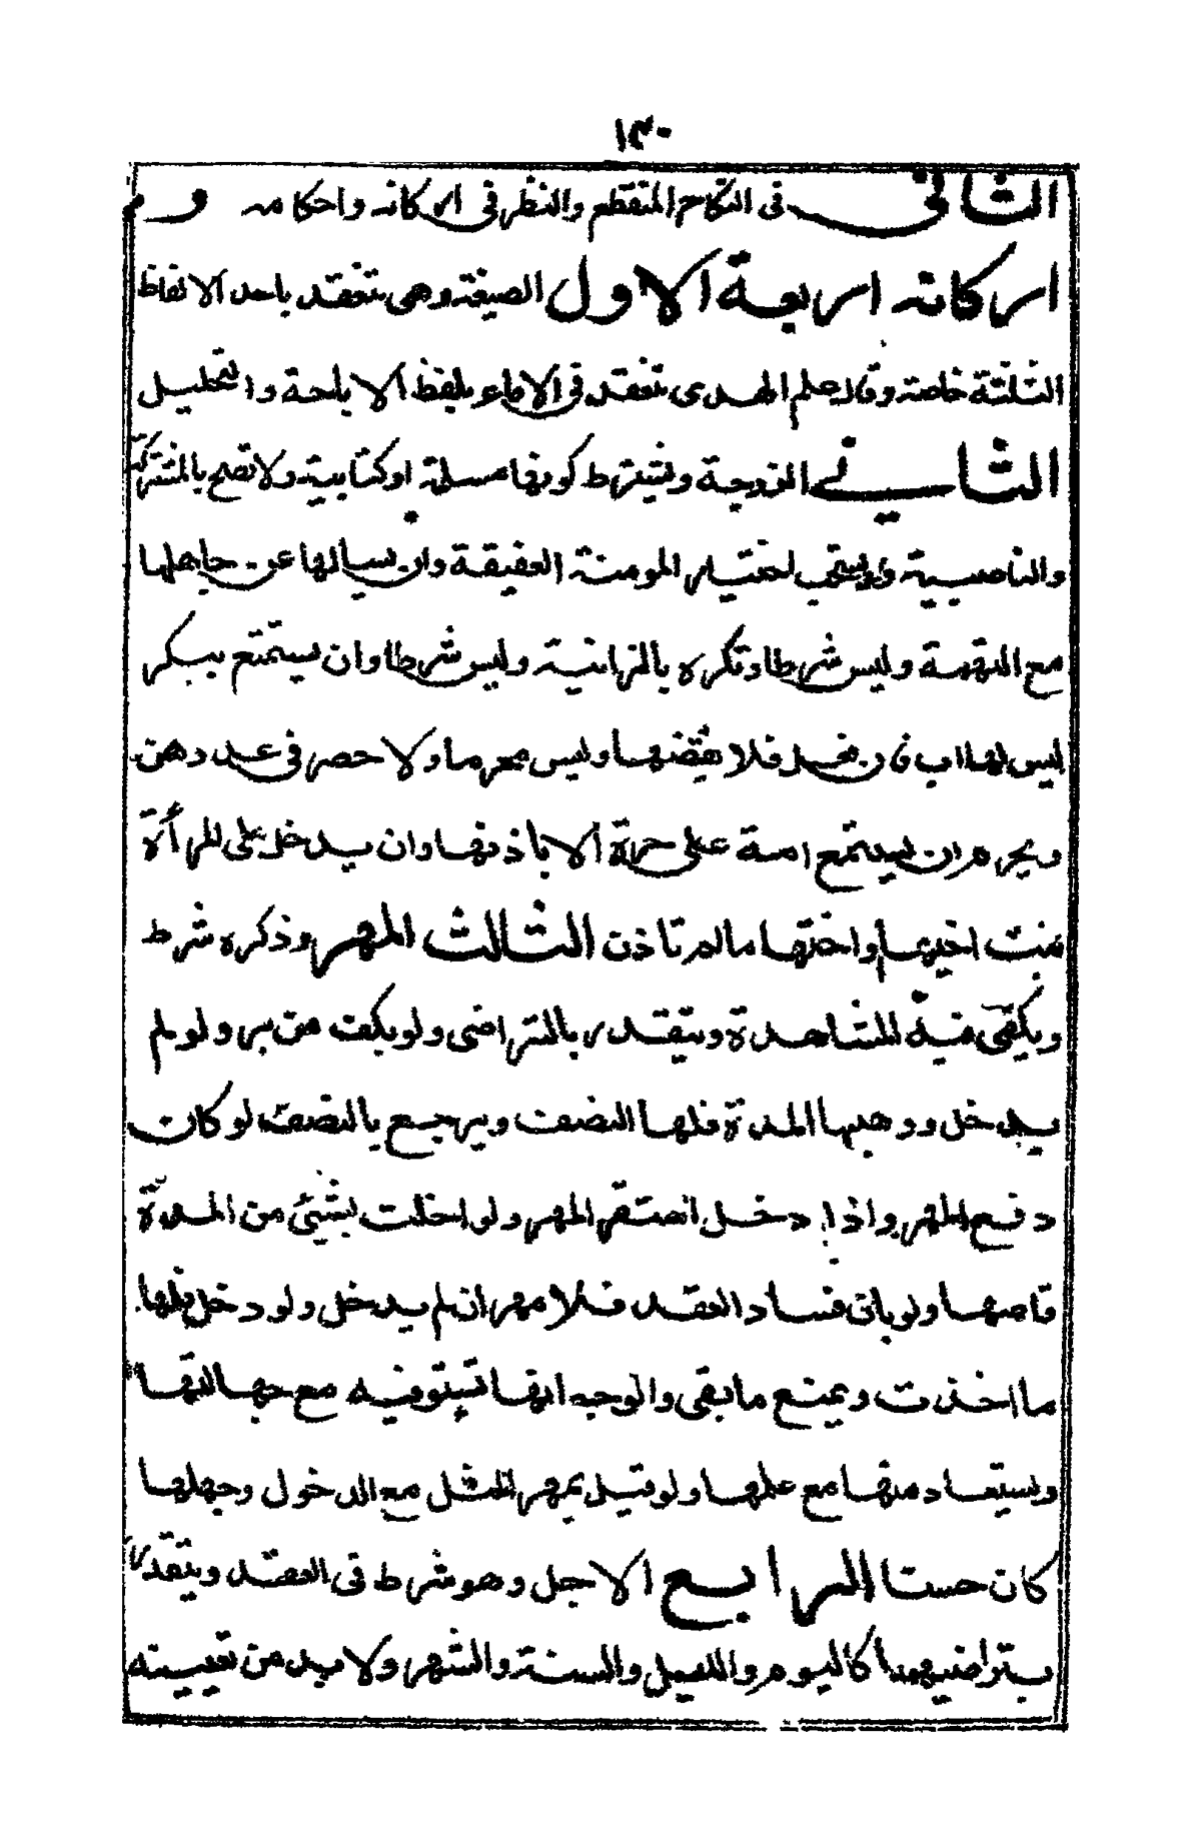 ١٣٠
الثاني في النكاح المنقطع والنظر في اركانه واحكامه و
اركانه اربعة الاول الصيغة وهي تنعقد باحد الالفاظ
الثلثة خاصة وقال علم الهدى تنعقد في الاماء بلفظ الاباحة والتحليل
الثاني الزوجة ويشترط كونها مسلمة او كتابية ولا تصح بالمشركة
والناصبية ويستحب اختيار المومنة العفيفة وان يسالها عن حالها
مع التهمة وليس شرطا وتكره بالزانية وليس شرطا وان يستمتع ببكر
ليس لها اب فان فعل فلا يقتضها وليس محرما ولا حصر في عددهن
ويحرم ان يستمتع امة على حرة الا باذنها وان يدخل على المرأة
بنت اخيها واختها مالم تاذن الثالث المهر وذكره شرط
ويكفي فيه المشاهدة ويتقدر بالتراضي ولو بكف من بر ولو لم
يدخل ووهبها المدة فلها النصف ويرجع بالنصف لو كان
دفع المهر واذا دخل استقر المهر ولو اخلت بشيئ من المدة
قاصها ولو بان فساد العقد فلا مهر ان لم يدخل ولو دخل فلها
ما اخذت ويمنع ما بقي والوجه انها تستوفيه مع جهالتها
ويستعاد منها مع علمها ولو قيل بمهر المثل مع الدخول وجهلها
كان حسنا الرابع الاجل وهو شرط في العقد ويتقدر
بتراضيهما كاليوم والليل والسنة والشهر ولا بد من تعيينه